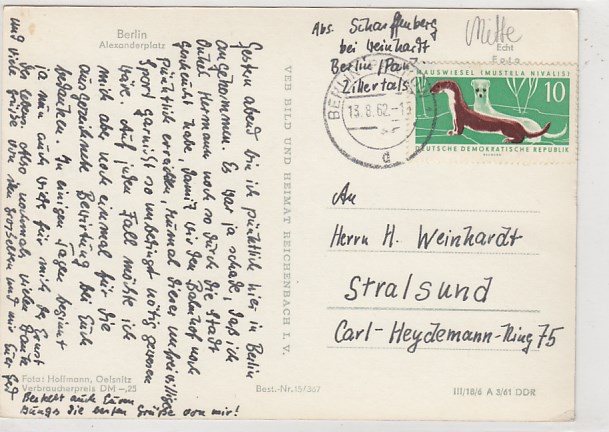 Berlin
Alexanderplatz
Gestern abend bin ich pünktlich hier in Berlin
angekommen. Es war ja schade, daß ich
Onkel Hermann noch so durch die Stadt
gescheucht habe, damit wir den Bahnhof noch
pünktlich erreichten, zumal dieser unfreiwillige
Sport garnicht so unbedingt nötig gewesen
wäre. Auf jeden Fall möchte ich
mich aber noch einmal für die
ausgezeichnete Bewirtung bei Euch
bedanken. In einigen Tagen beginnt
ja nun auch wieder für mich der Ernst
des Lebens. Also nochmals vielen Dank
und viele Grüße von den Großeltern und mir Euer
Bestellt auch Euren
Jungs die besten Grüße von mir!
Foto: Hoffmann, Oelsnitz
Verbraucherpreis DM -,25
VEB BILD UND HEIMAT REICHENBACH I. V.
Best.-Nr. 15/367
Abs. Scharffenberg
bei Weinhardt
Berlin/Pank.
Zillertalstr.
Mitte
Echt
Foto
BERLIN
13.8.62
d
MAUSWIESEL (MUSTELA NIVALIS)
10
DEUTSCHE DEMOKRATISCHE REPUBLIK
An
Herrn H. Weinhardt
Stralsund
Carl-Heydemann-Ring 75
III/18/6 A 3/61 DDR